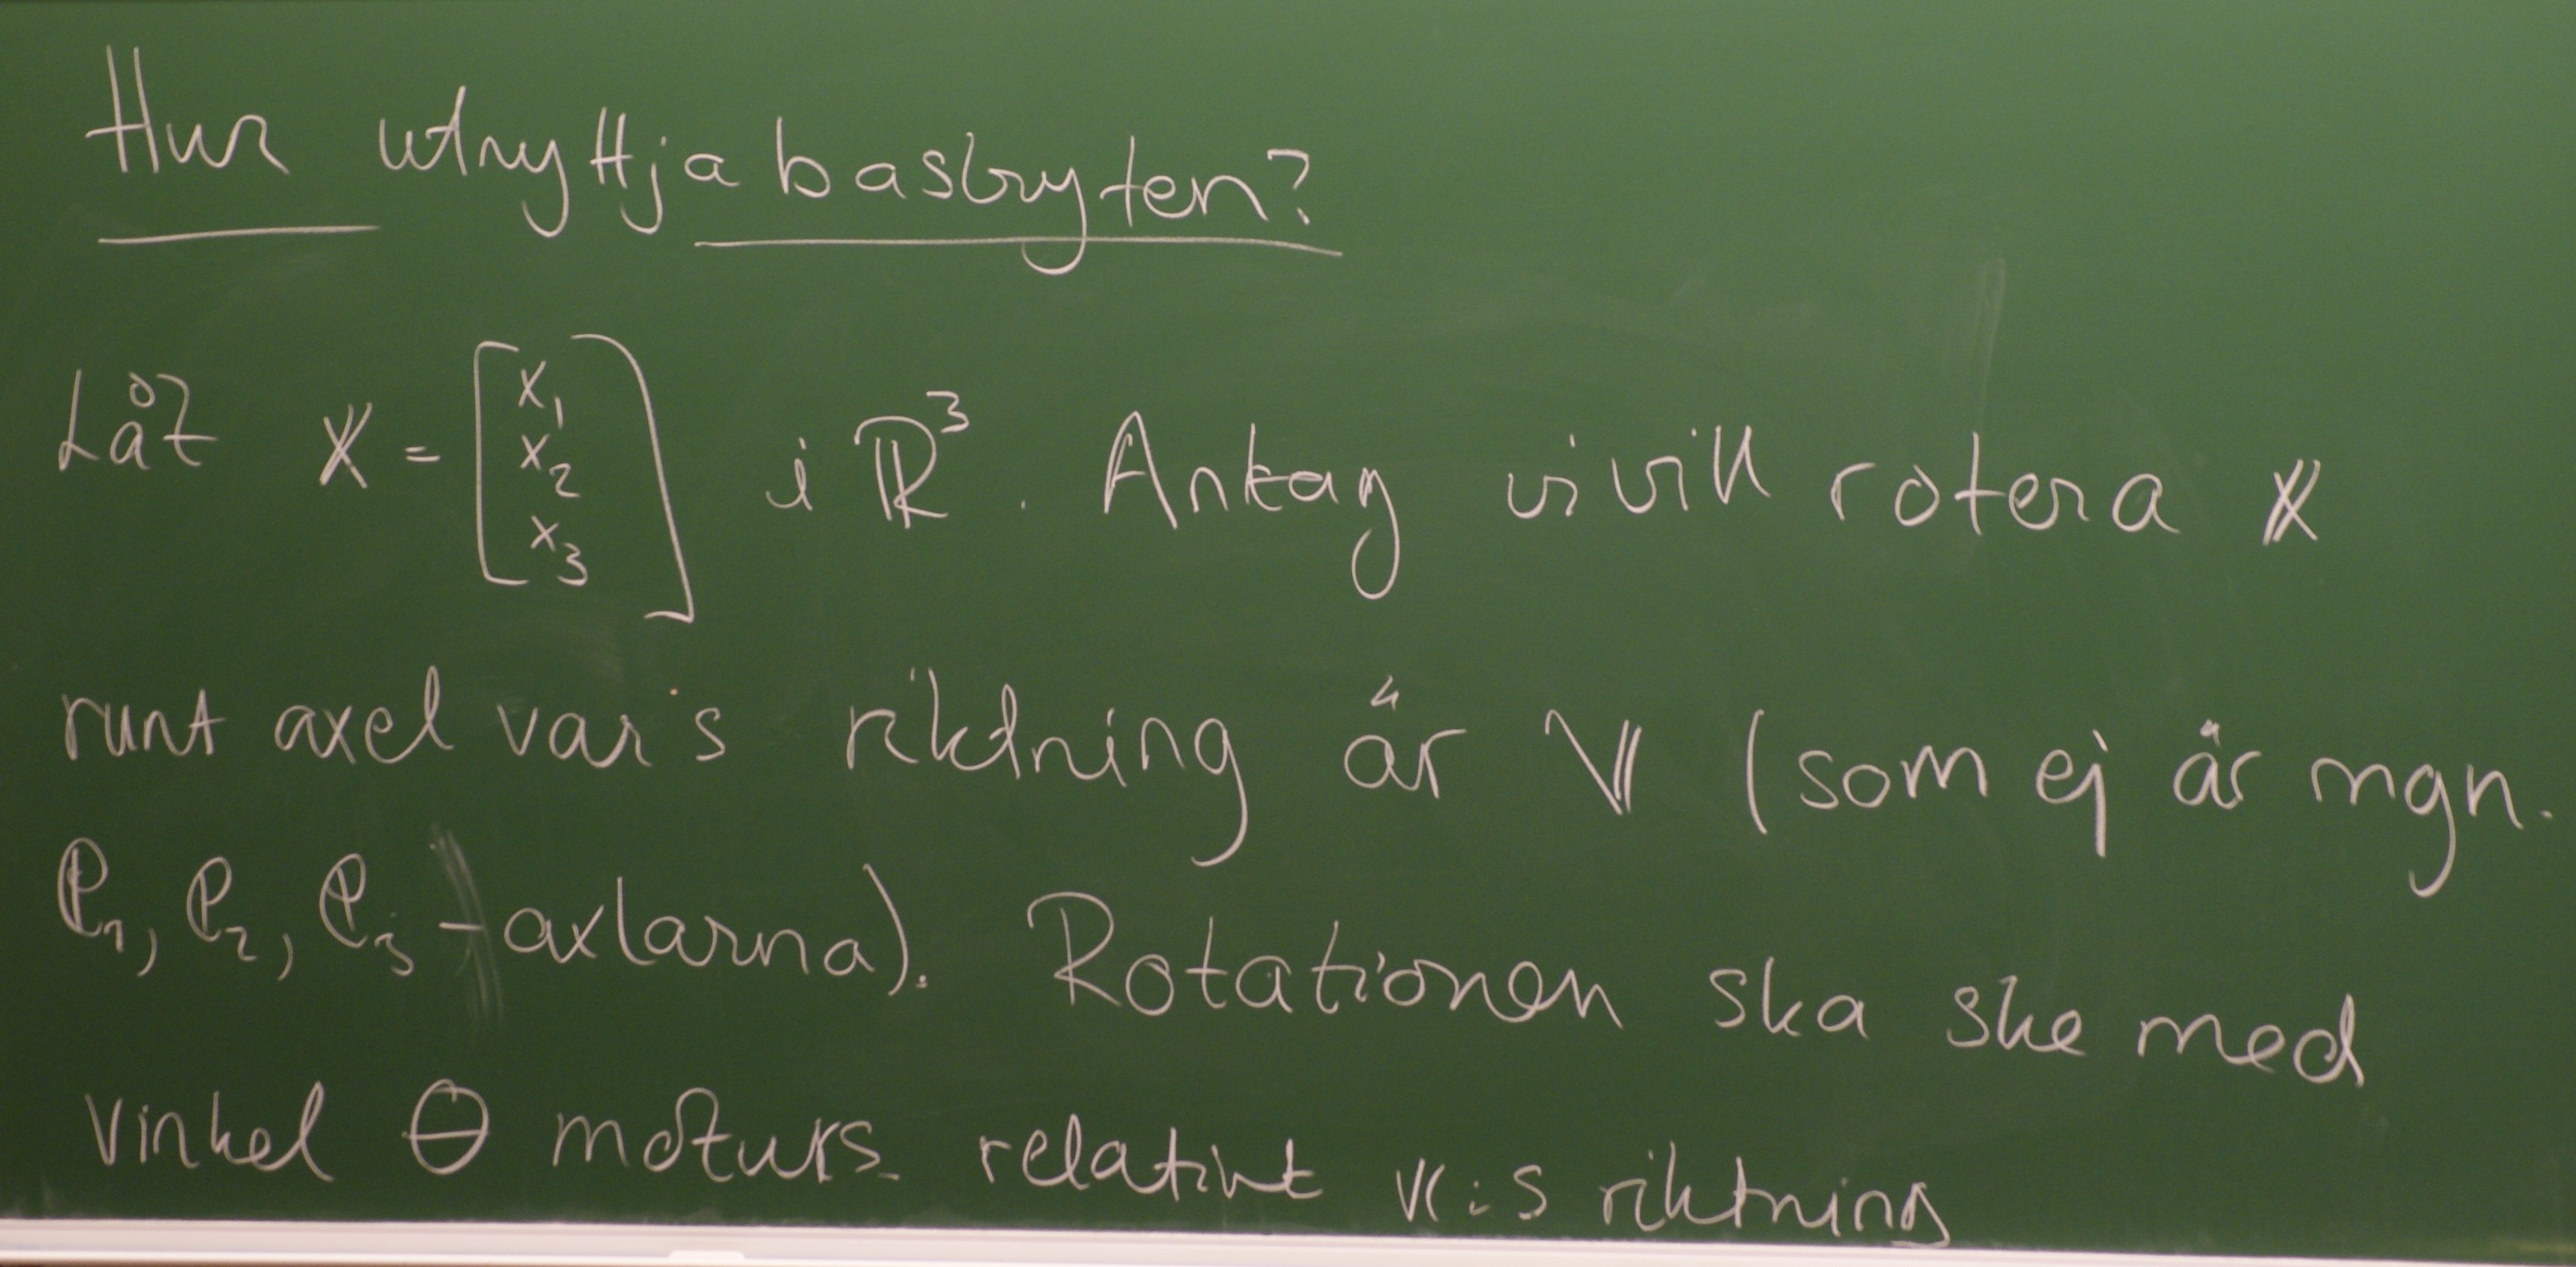 Hur utnyttja basbyten?
Låt 𝕏 = [x₁ x₂ x₃] i ℝ³. Antag vi vill rotera 𝕏
runt axel var's riktning är 𝕍 (som ej är ngn.
e₁, e₂, e₃ - axlarna). Rotationen ska ske med
vinkel θ moturs relativt 𝕍:s riktning